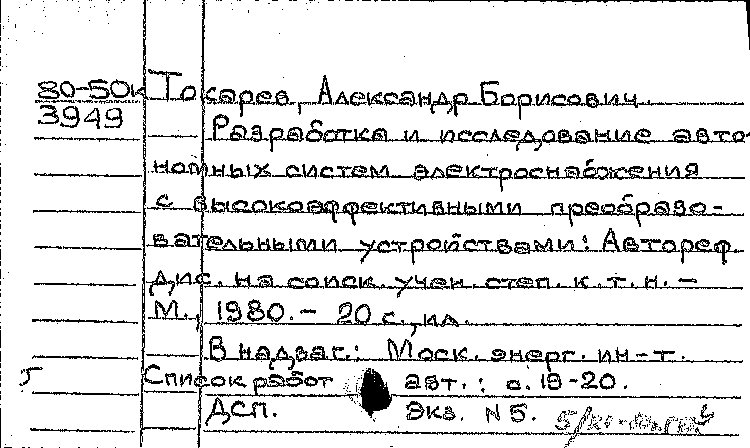 80-50к Токарев, Александр Борисович
3949
Разработка и исследование авто-
номных систем электроснабжения
с высокоэффективными преобразо-
вательными устройствами: Автореф.
дис. на соиск. учен. степ. к. т. н. –
М., 1980. – 20 с., ил.
В надзаг.: Моск. энерг. ин-т.
Список работ авт.: с. 19-20.
ДСП. Экз. N 5.